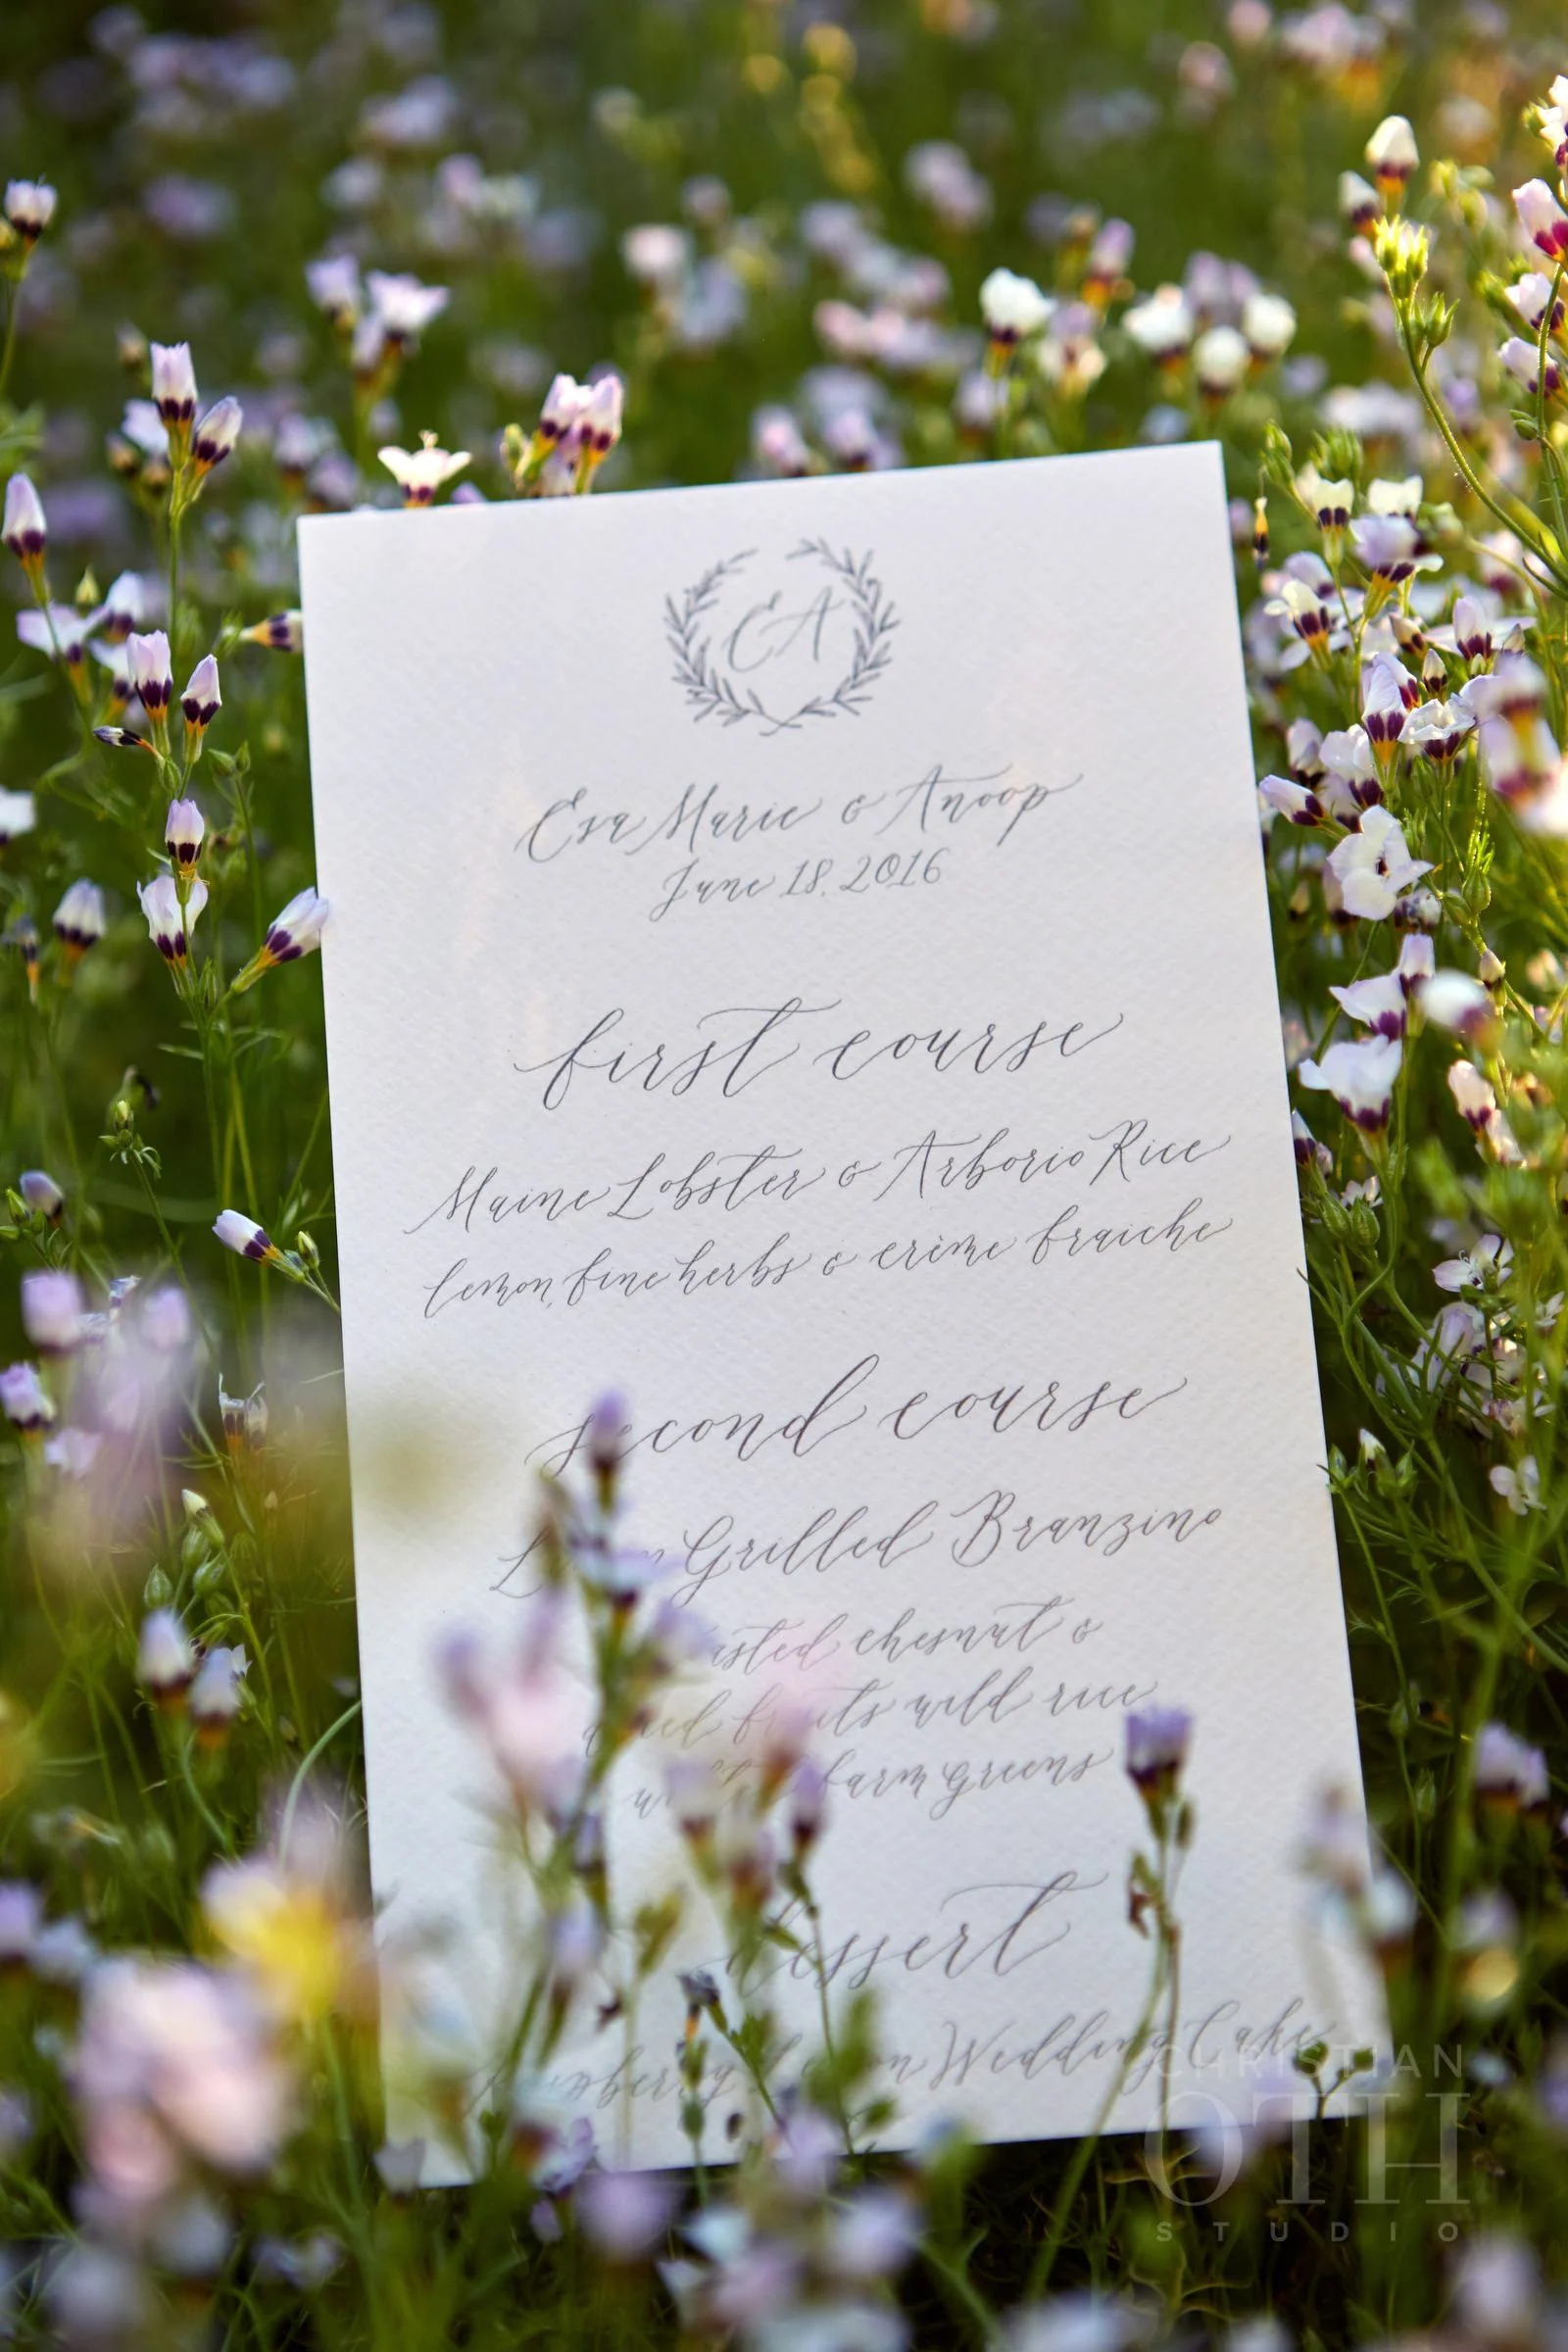 EA
Esa Marie & Anoop
June 18, 2016
first course
Maine Lobster & Arborio Rice
lemon, fine herbs & crème fraiche
second course
Grilled Branzino
chesnut &
fruits wild rice
farm greens
dessert
Wedding Cake
CHRISTIAN
OTH
STUDIO